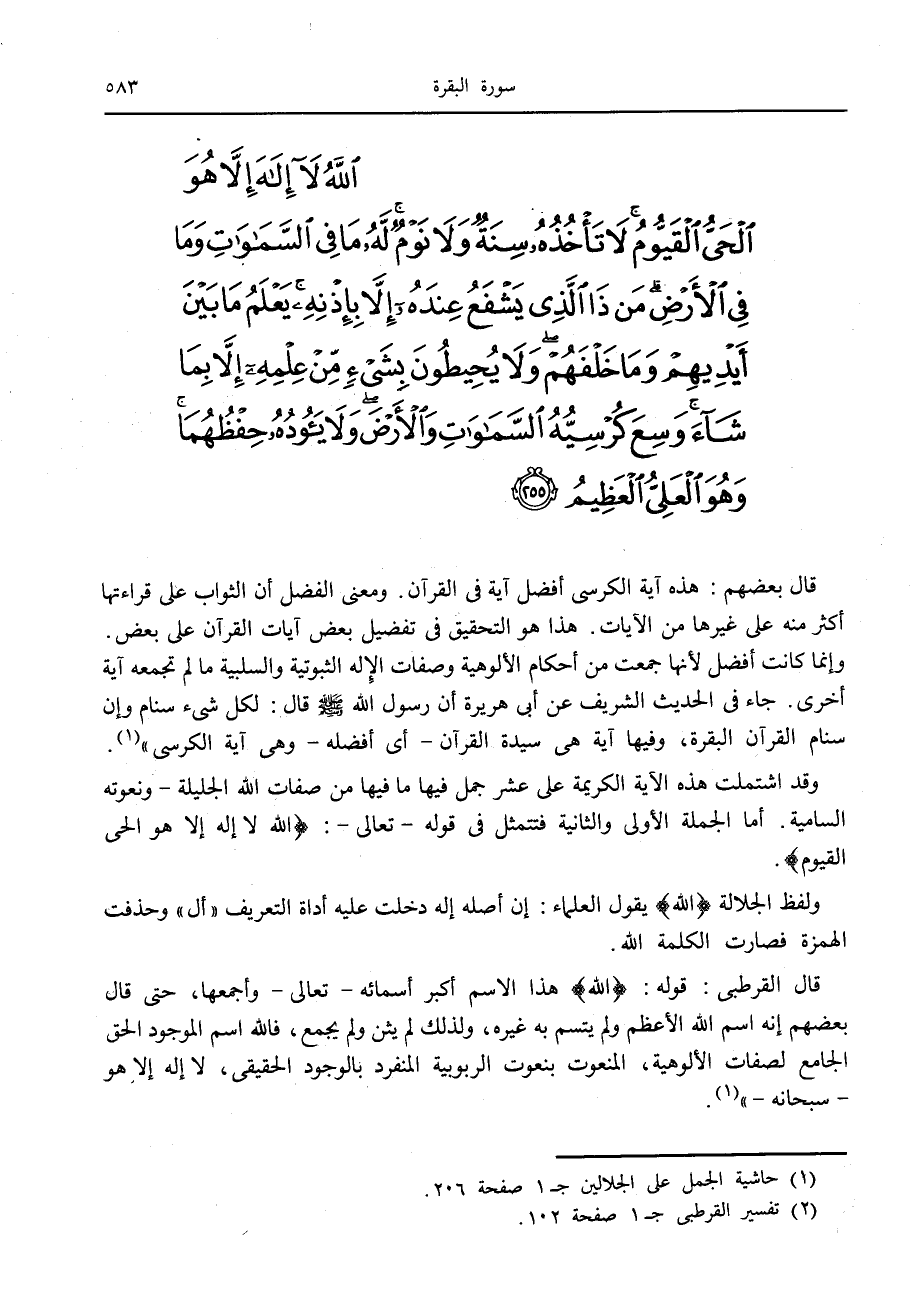 سورة البقرة ٥٨٣
ٱللَّهُ لَآ إِلَٰهَ إِلَّا هُوَ
ٱلْحَىُّ ٱلْقَيُّومُ ۚ لَا تَأْخُذُهُۥ سِنَةٌ وَلَا نَوْمٌ ۚ لَّهُۥ مَا فِى ٱلسَّمَٰوَٰتِ وَمَا
فِى ٱلْأَرْضِ ۗ مَن ذَا ٱلَّذِى يَشْفَعُ عِندَهُۥٓ إِلَّا بِإِذْنِهِۦ ۚ يَعْلَمُ مَا بَيْنَ
أَيْدِيهِمْ وَمَا خَلْفَهُمْ ۖ وَلَا يُحِيطُونَ بِشَىْءٍ مِّنْ عِلْمِهِۦٓ إِلَّا بِمَا
شَآءَ ۚ وَسِعَ كُرْسِيُّهُ ٱلسَّمَٰوَٰتِ وَٱلْأَرْضَ ۖ وَلَا يَـُٔودُهُۥ حِفْظُهُمَا ۚ
وَهُوَ ٱلْعَلِىُّ ٱلْعَظِيمُ ﴿٢٥٥﴾
قال بعضهم : هذه آية الكرسى أفضل آية فى القرآن. ومعنى الفضل أن الثواب على قراءتها
أكثر منه على غيرها من الآيات. هذا هو التحقيق فى تفضيل بعض آيات القرآن على بعض.
وإنما كانت أفضل لأنها جمعت من أحكام الألوهية وصفات الإله الثبوتية والسلبية ما لم تجمعه آية
أخرى. جاء فى الحديث الشريف عن أبى هريرة أن رسول الله ﷺ قال : لكل شىء سنام وإن
سنام القرآن البقرة، وفيها آية هى سيدة القرآن – أى أفضله – وهى آية الكرسى»(١).
وقد اشتملت هذه الآية الكريمة على عشر جمل فيها ما فيها من صفات الله الجليلة – ونعوته
السامية. أما الجملة الأولى والثانية فتتمثل فى قوله – تعالى – : ﴿الله لا إله إلا هو الحى
القيوم﴾.
ولفظ الجلالة ﴿الله﴾ يقول العلماء : إن أصله إله دخلت عليه أداة التعريف «أل» وحذفت
الهمزة فصارت الكلمة الله.
قال القرطبى : قوله : ﴿الله﴾ هذا الاسم أكبر أسمائه – تعالى – وأجمعها، حتى قال
بعضهم إنه اسم الله الأعظم ولم يتسم به غيره، ولذلك لم يثن ولم يجمع، فالله اسم الموجود الحق
الجامع لصفات الألوهية، المنعوت بنعوت الربوبية المنفرد بالوجود الحقيقى، لا إله إلا هو
– سبحانه – »(١).
(١) حاشية الجمل على الجلالين جـ ١ صفحة ٢٠٦.
(٢) تفسير القرطبى جـ ١ صفحة ١٠٢.